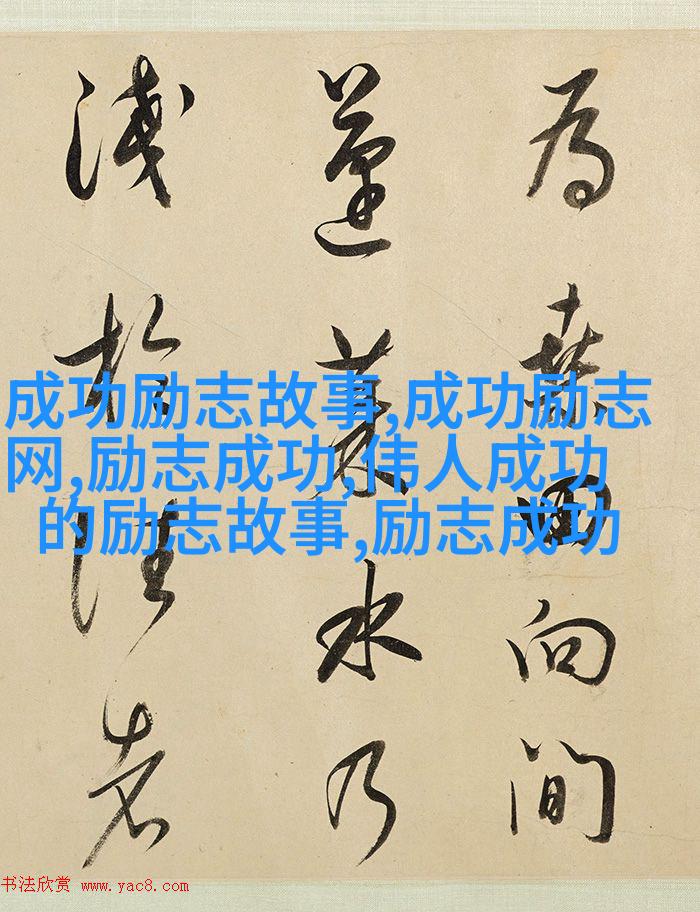 為桑田向間
蓬萊水乃
淺於往者
成功励志故事,成功励志
网,励志成功,伟人成功
的励志故事,励志成功
书法欣赏 www.yac8.com